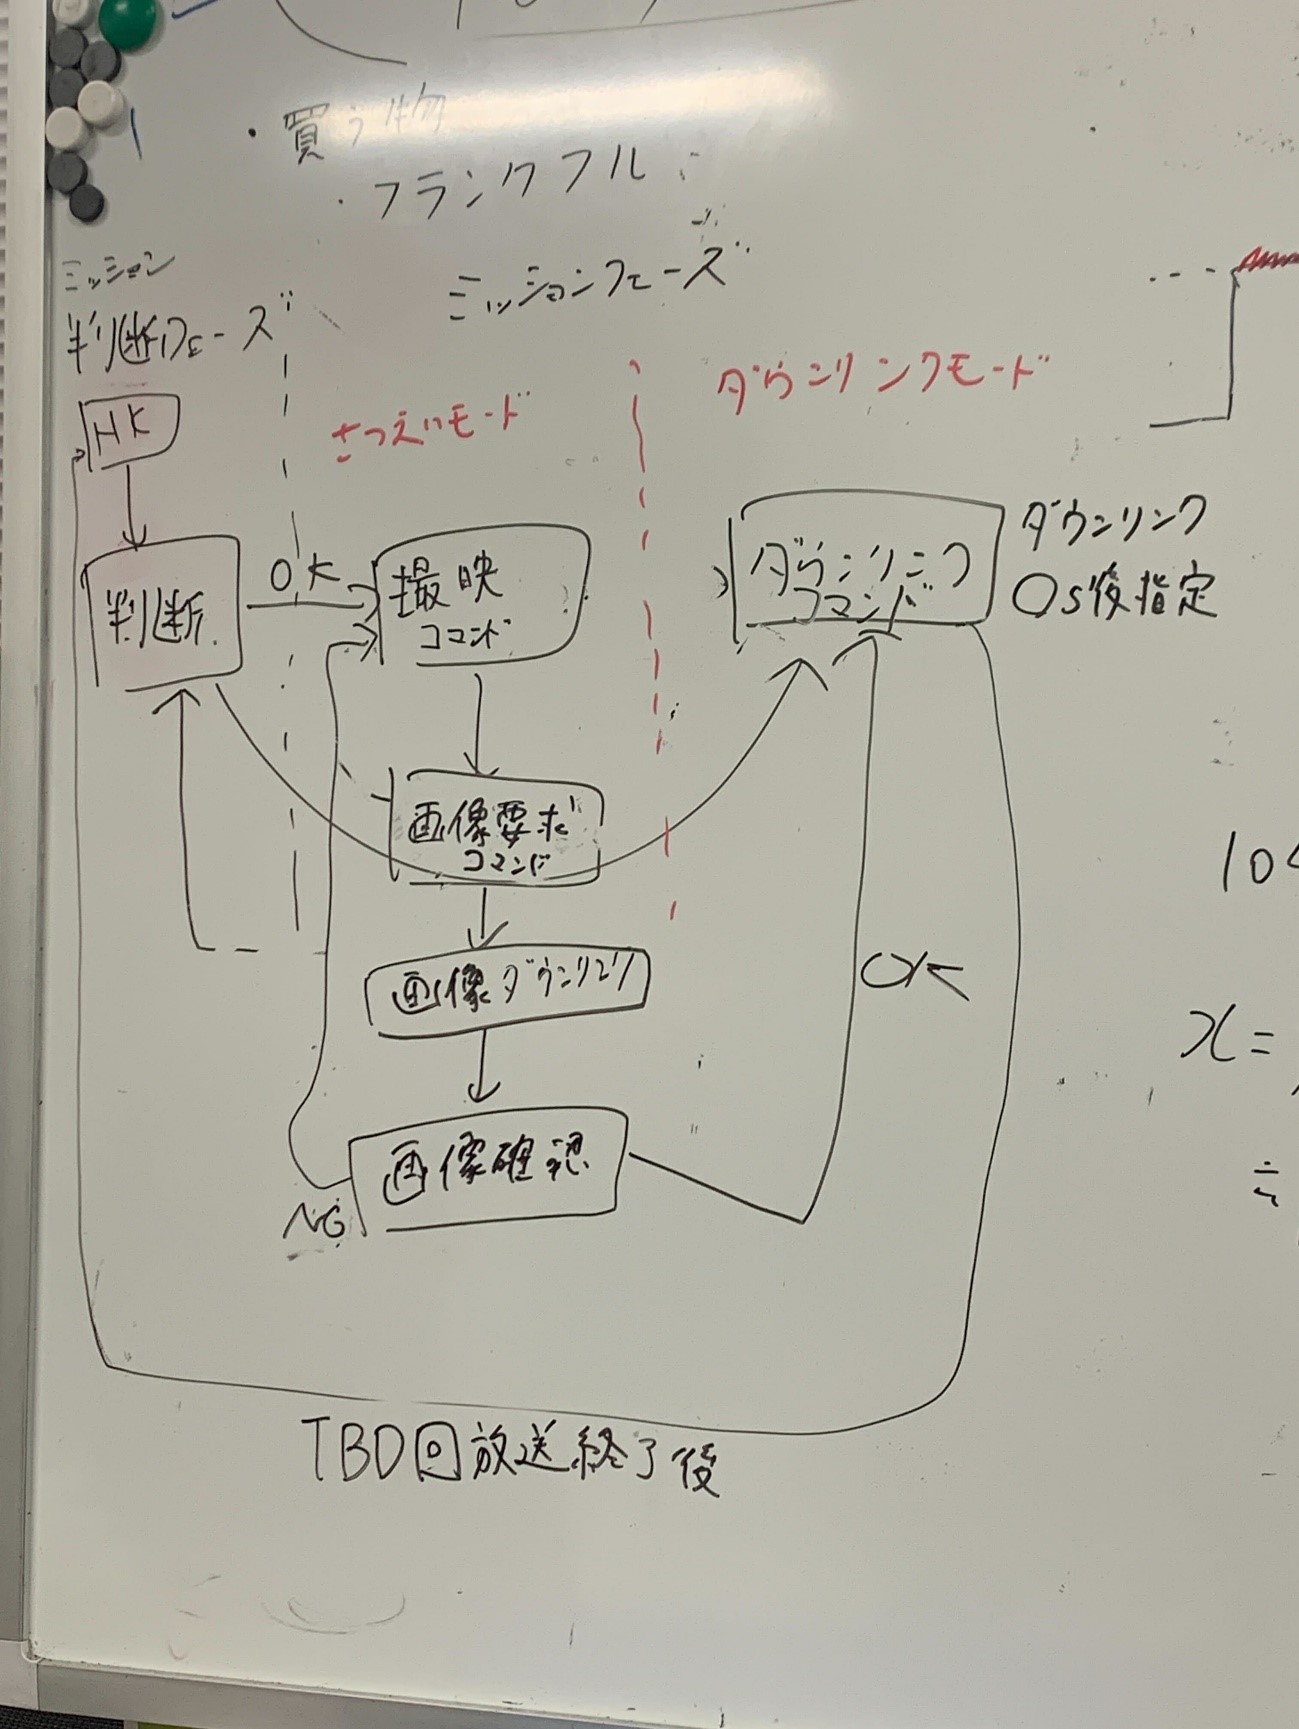 ・買う物
・フランクフル
ミッション
判断フェーズ
ミッションフェーズ
さつえいモード
ダウンリンクモード
HK
判断
OK
撮映
コマンド
ダウンリンク
コマンド
ダウンリンク
○s後指定
画像要求
コマンド
画像ダウンリンク
OK
画像確認
NG
TBD回放送終了後
10
x=
≒